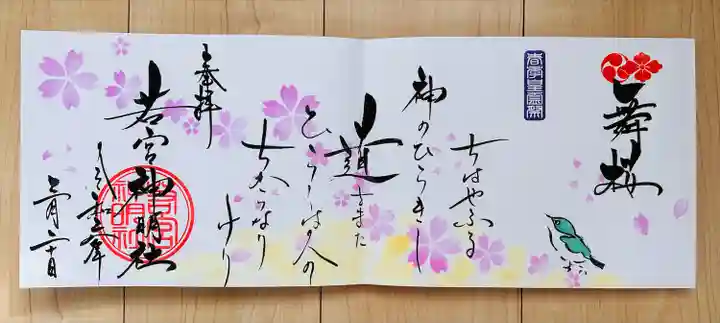 舞桜
春季皇霊祭
ちはやふる
神のひらきし
道をまた
ひらくは人の
ちからなり
けり
奉拝
若宮神明社
令和年
三月二十日